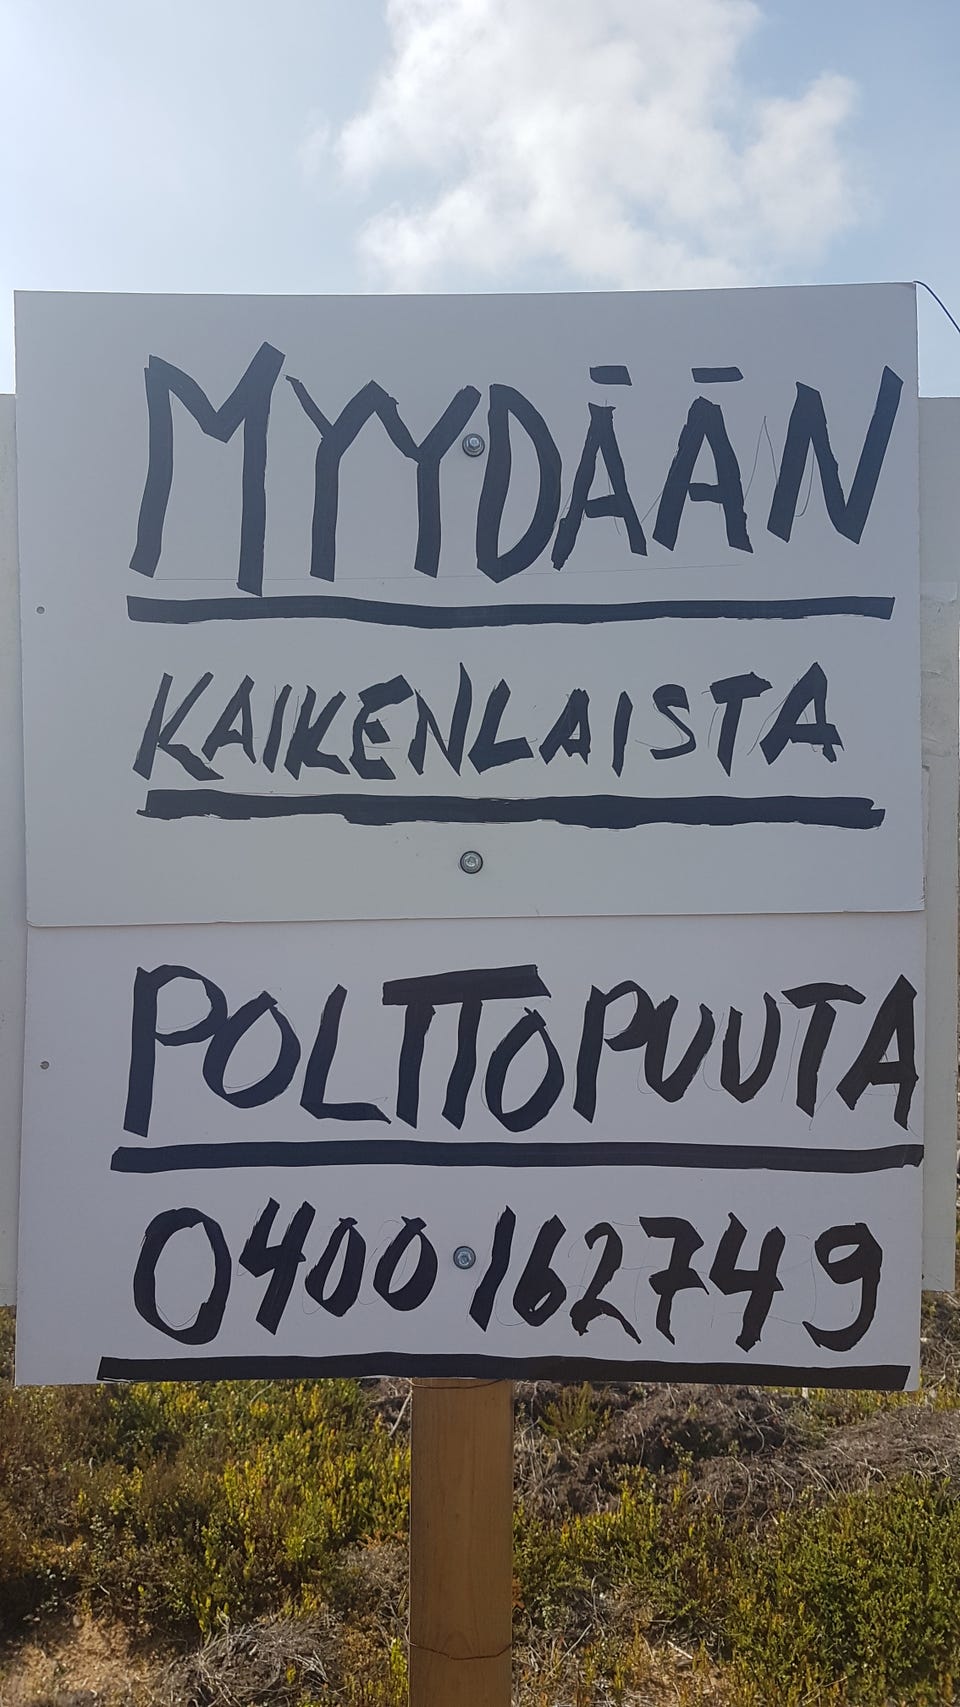 MYYDÄÄN
KAIKENLAISTA
POLTTOPUUTA
0400 162749